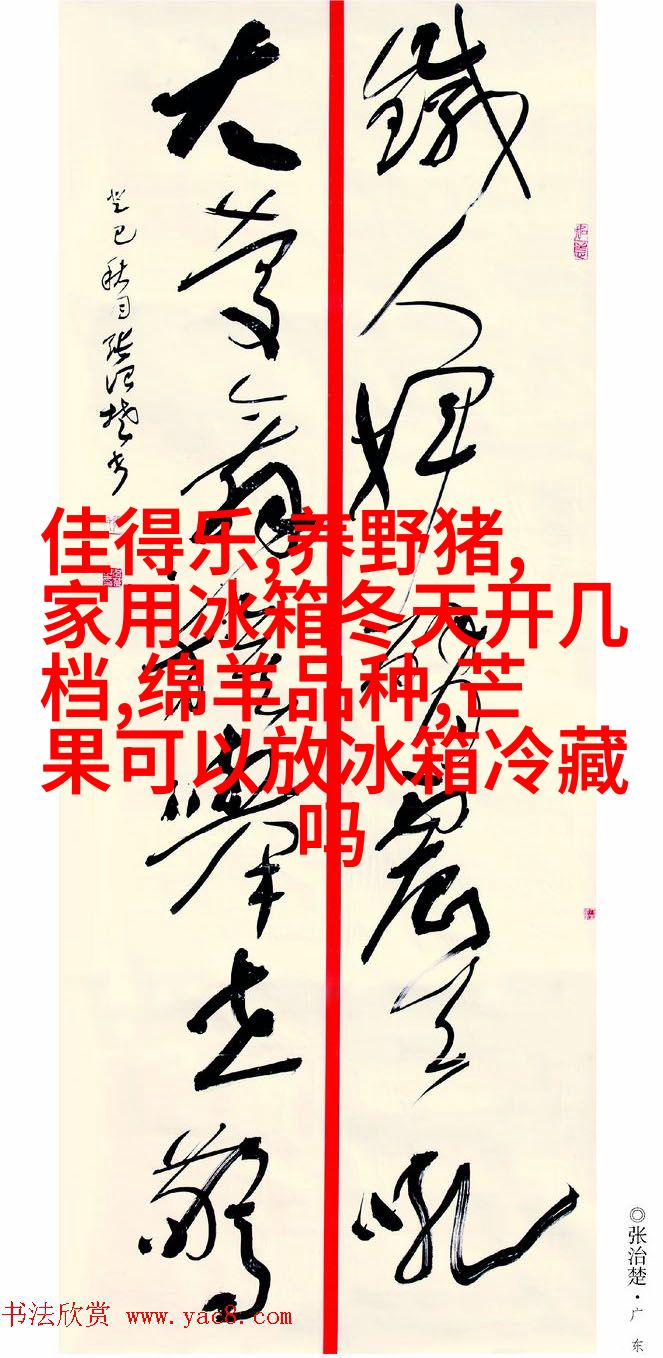 鐵人天吼
大慶舉世驚
癸巳秋月张治楚书
佳得乐,养野猪,
家用冰箱冬天开几
档,绵羊品种,芒
果可以放冰箱冷藏
吗
◎张治楚·广东
书法欣赏 www.yac8.com